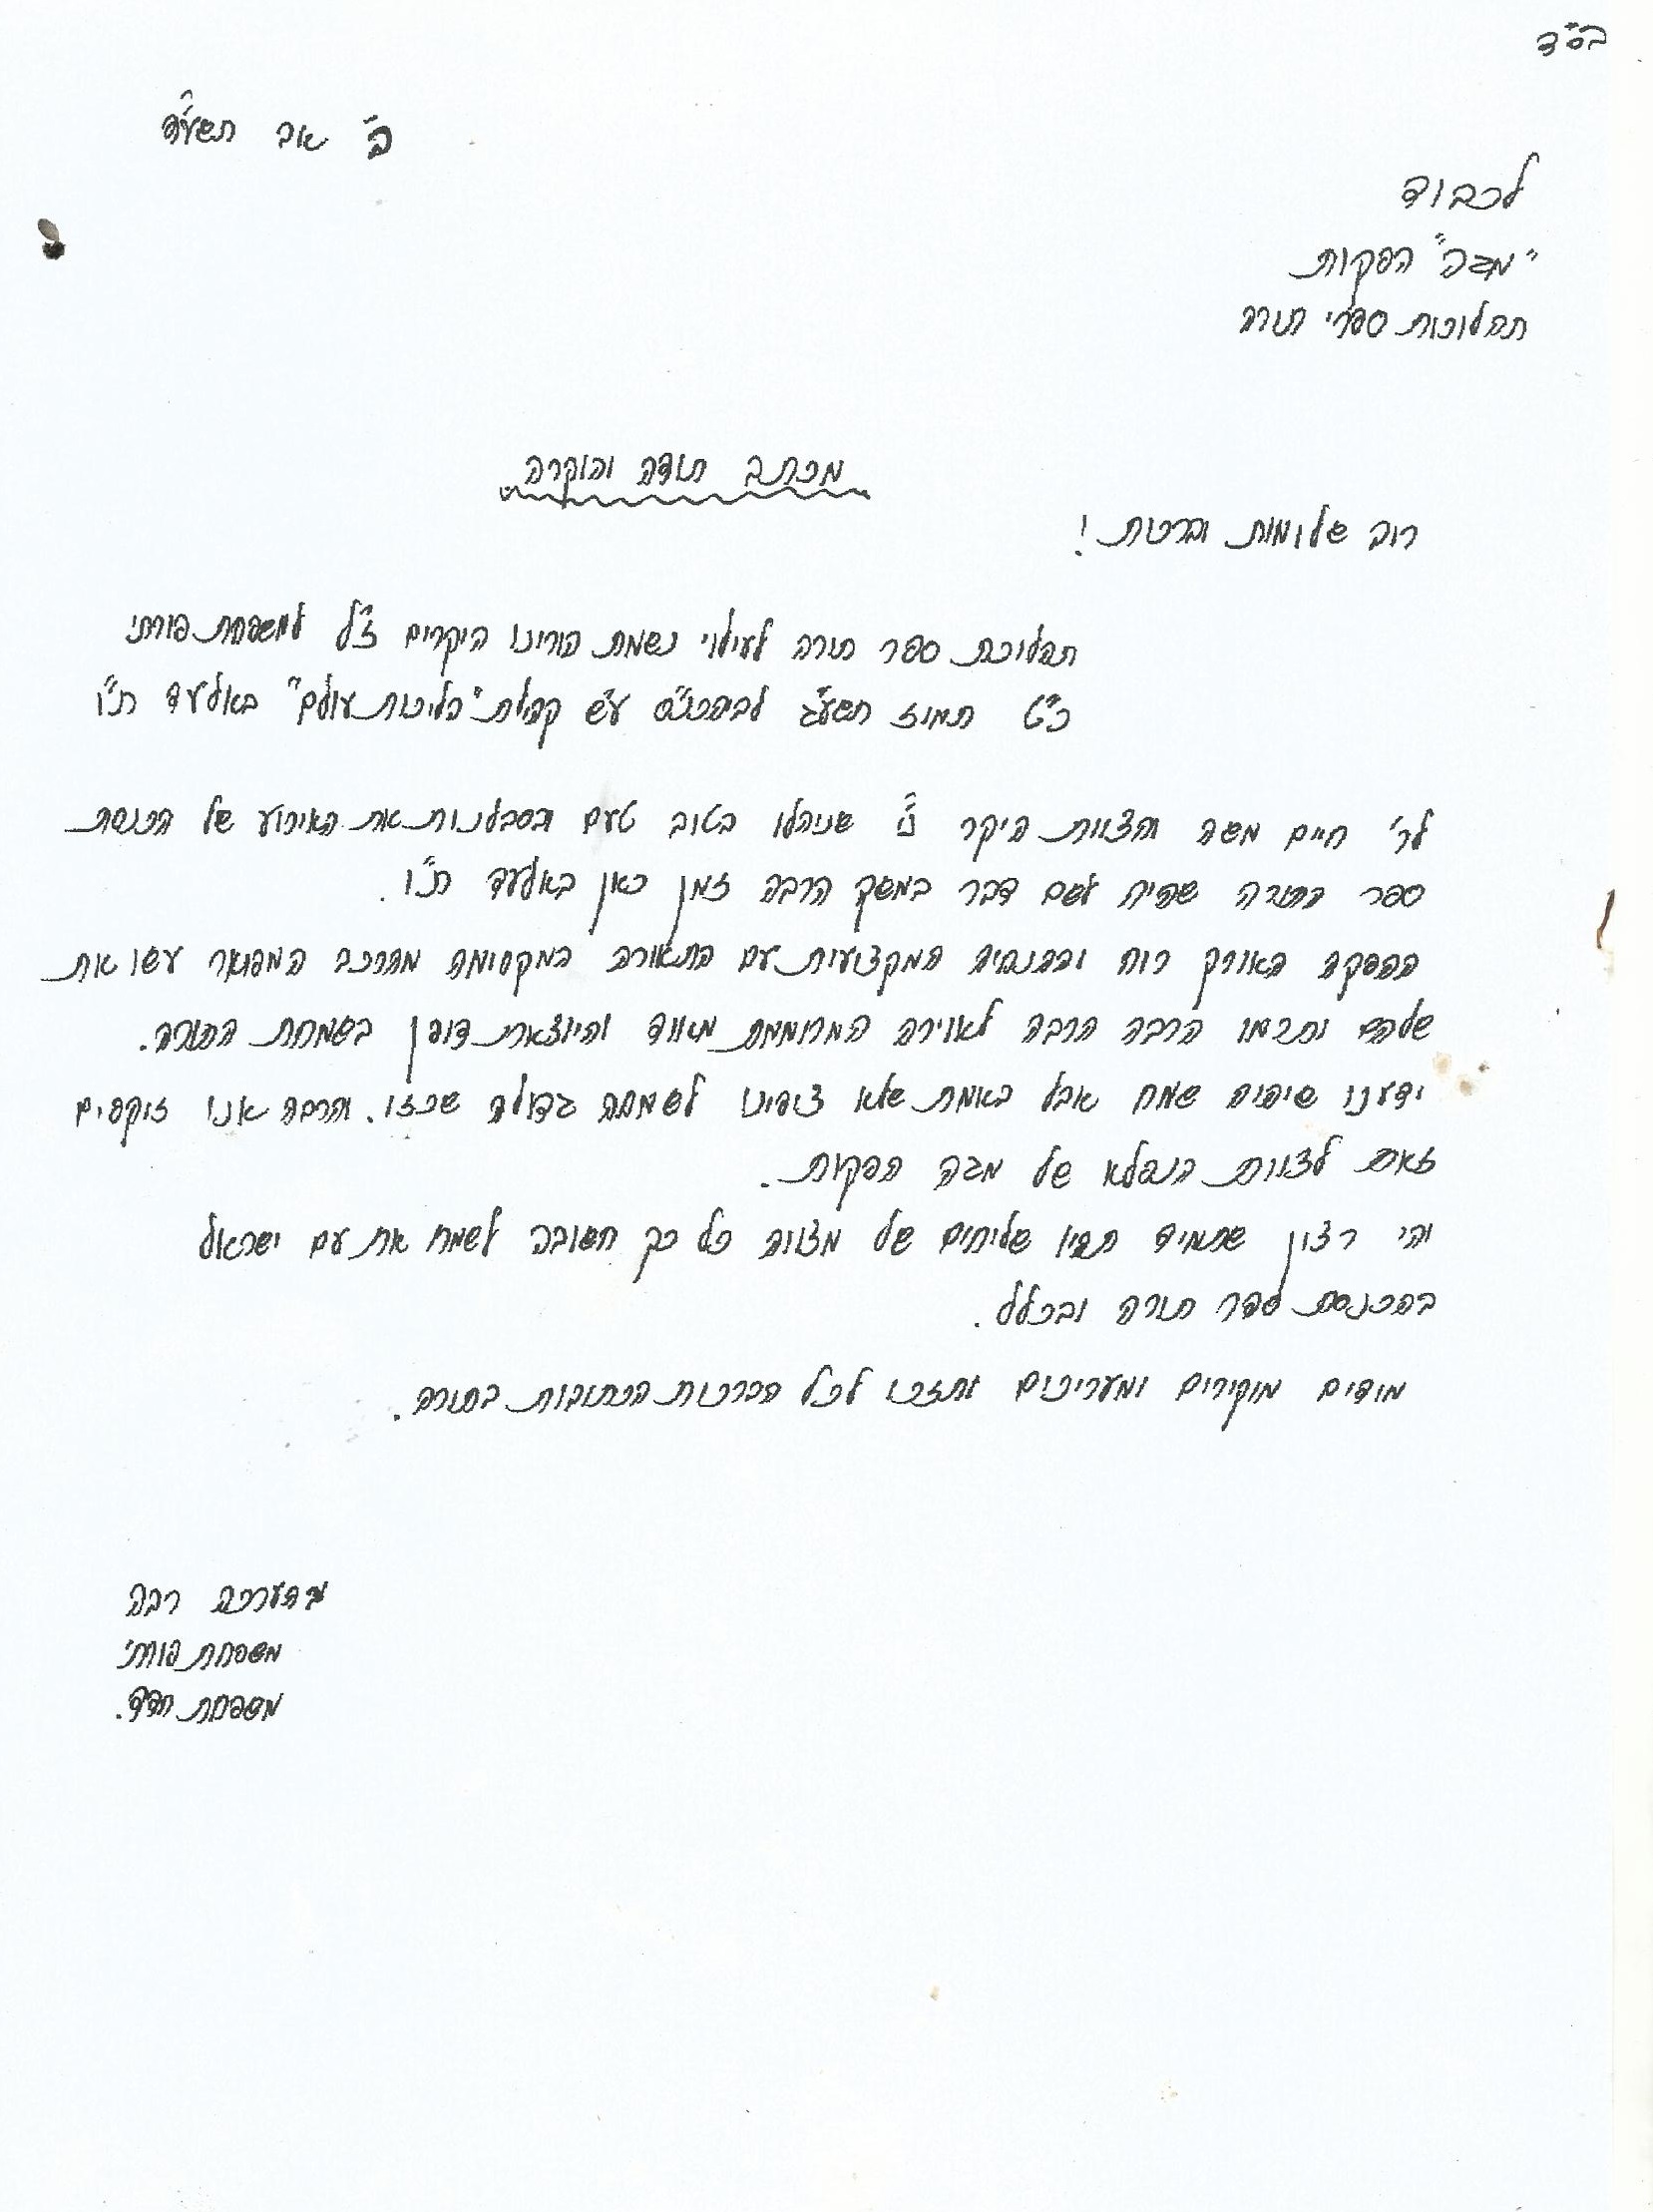 בס"ד
ב' אב תשע"ג
לכבוד
"מגה" הפקות
תהלוכות ספרי תורה
מכתב תודה והוקרה
רוב שלומות וברכות!
תהלוכת ספר תורה לעילוי נשמת הורינו היקרים ז"ל למשפחת פורתי
כ"ט תמוז תשע"ג לביהכנ"ס ע"ש קהילת "הליכות עולם" באלעד ת"ו
לר' חיים משה והצוות היקר נ"י שניהלו בטוב טעם ובסבלנות את האירוע של הכנסת
ספר התורה שהיה לשם דבר במשך הרבה זמן כאן באלעד ת"ו.
ההפקה באורך רוח ובהנחיה המקצועית עם התאורה המקסימה מהרכב המפואר עשו את
שלהם ותרמו הרבה הרבה לאוירה המרוממת מאוד והיוצאת דופן בשמחת התורה.
ידענו שיהיה שמח אבל באמת שלא ציפינו לשמחה גדולה שכזו. והרבה אנו זוקפים
זאת לצוות הנפלא של מגה הפקות.
ויהי רצון שתמיד תהיו שליחים של מצוה כל כך חשובה לשמח את עם ישראל
בהכנסת ספר תורה ובכלל.
מודים מוקירים ומעריכים ותזכו לכל הברכות הכתובות בתורה.
בהערכה רבה
משפחת פורתי
משפחת חדד.